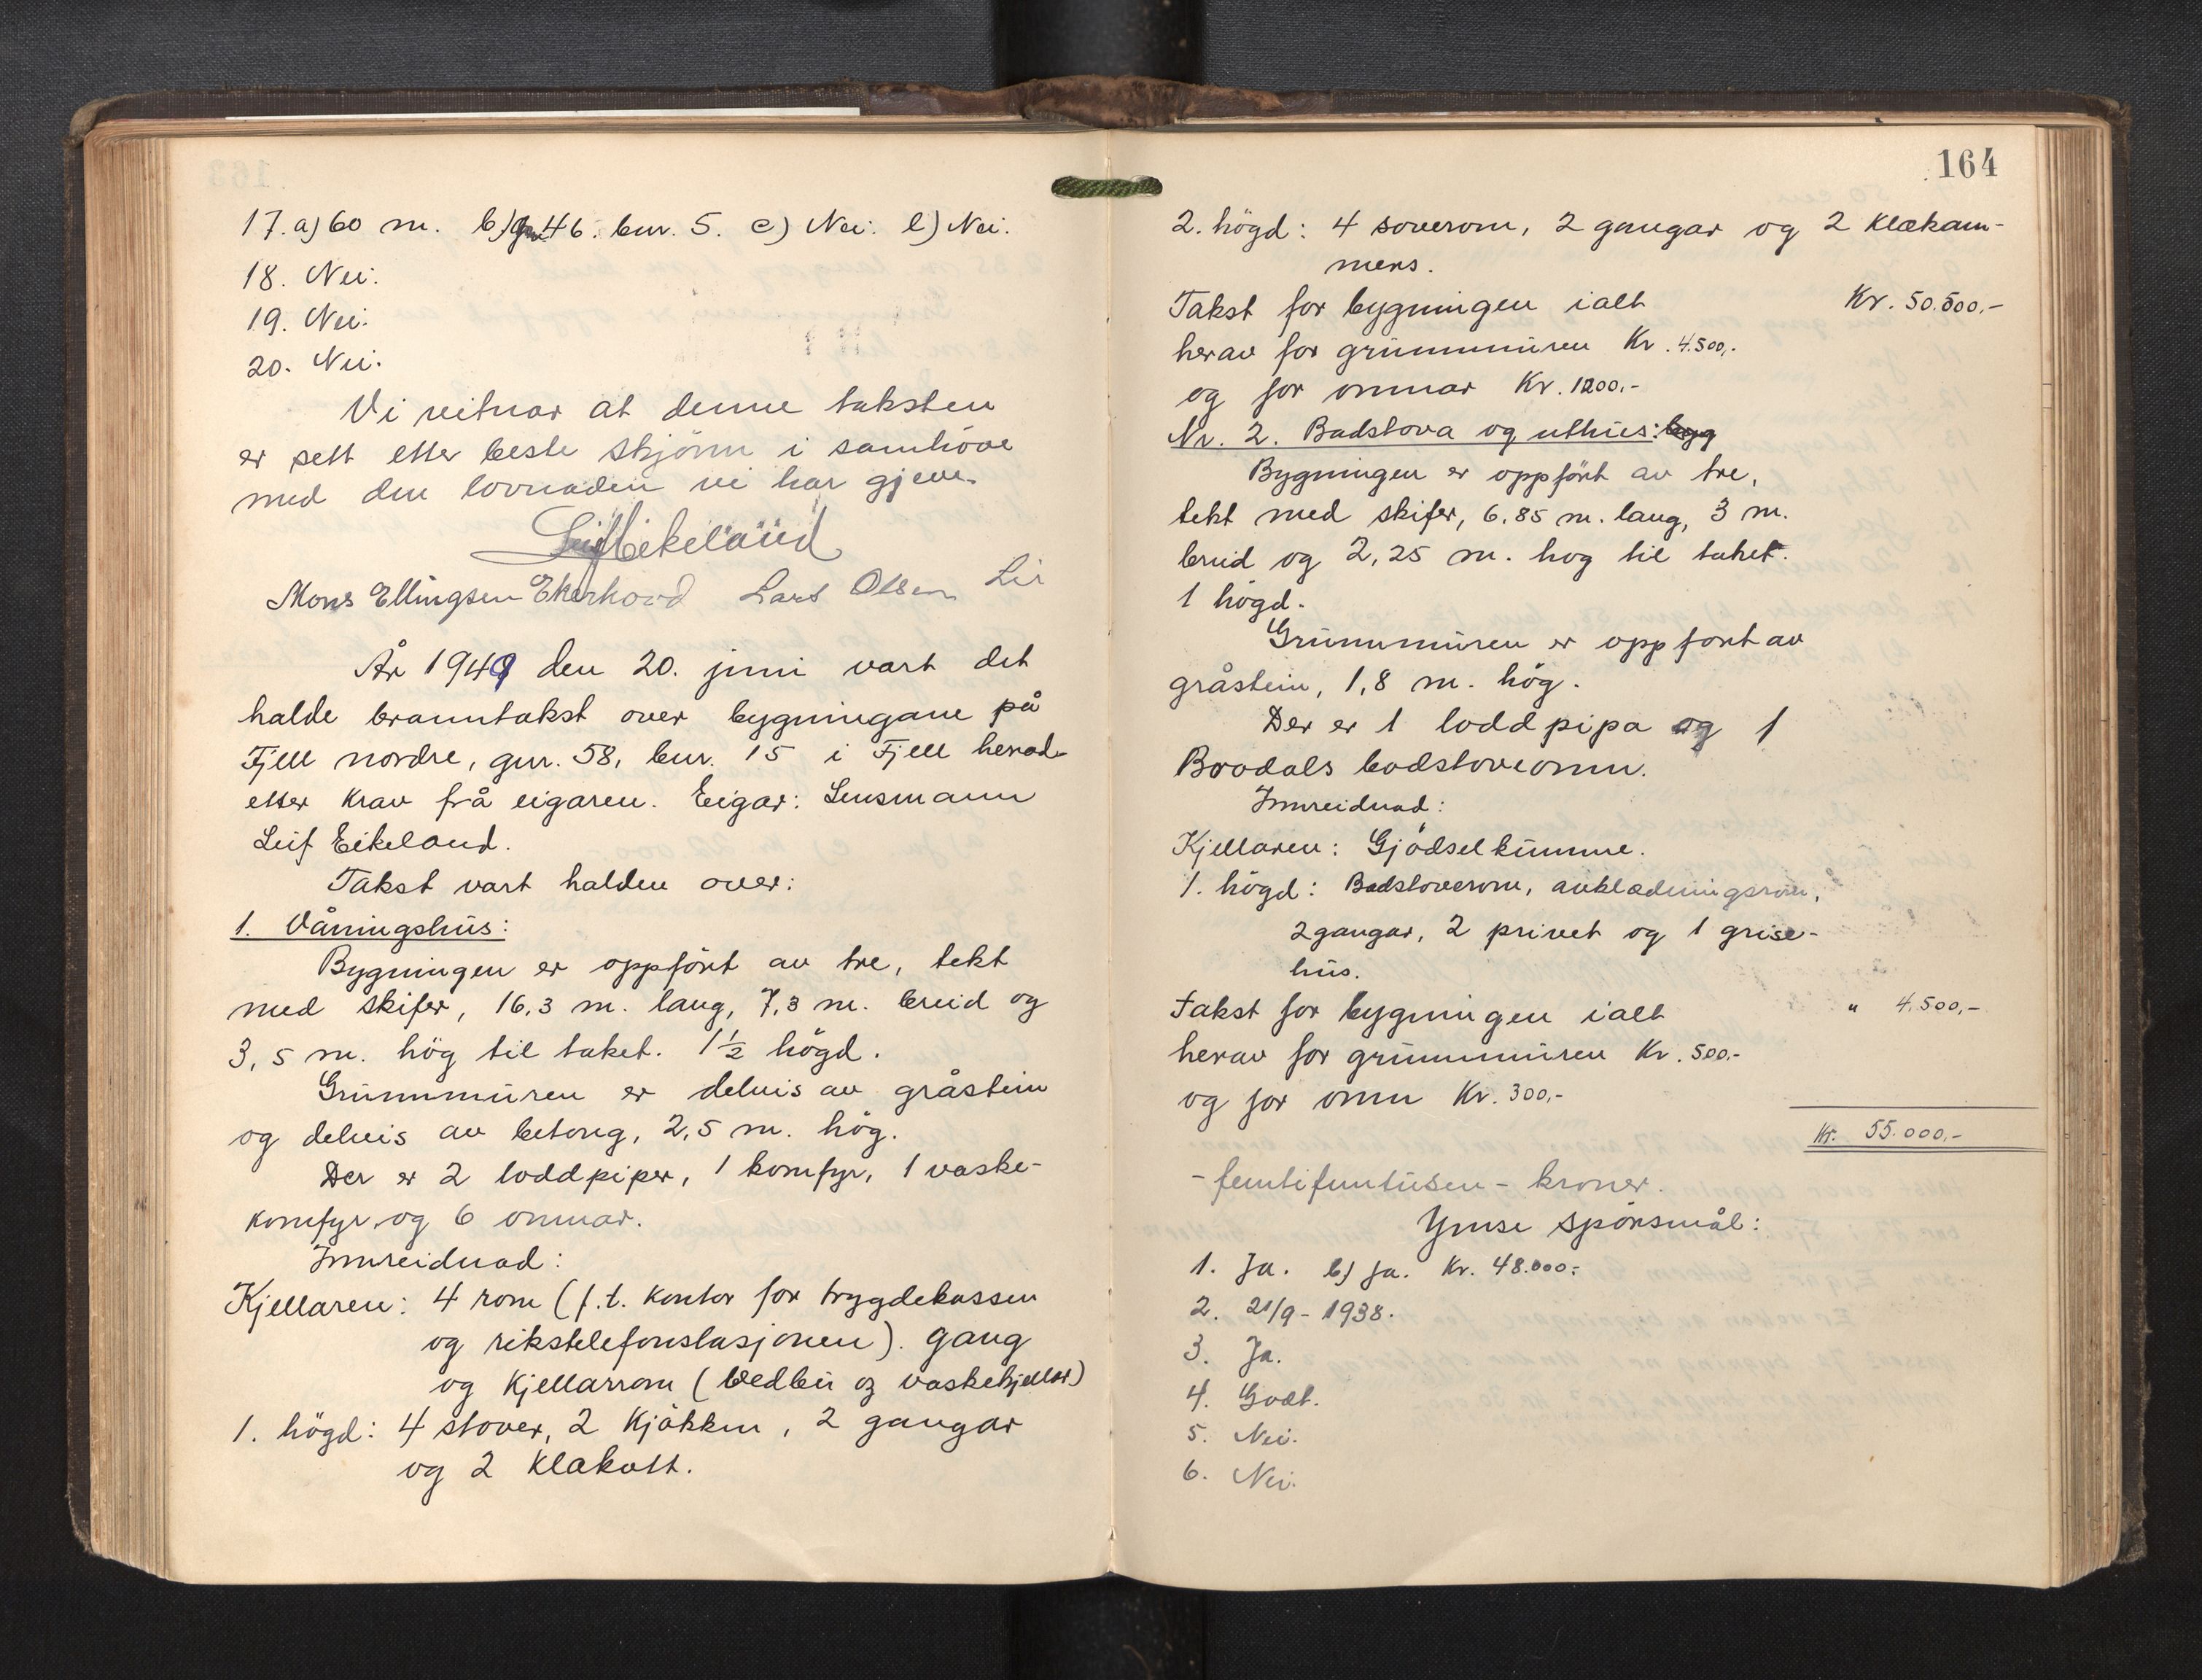 17. a) 60 m. b) gnr. 46. bnr. 5. c) Nei. l) Nei.
18. Nei.
19. Nei.
20. Nei.
Vi vitnar at denne taksten
er sett etter beste skjönn i samhöve
med den lovnaden vi har gjeve.
Leif Eikeland
Mons Ellingsen Ekerhovd Lars Olsen Lie
År 1949 den 20. juni vart det
halde branntakst over bygningane på
Fjell nordre, gnr. 58, bnr. 15 i Fjell herad
etter krav frå eigaren. Eigar: Lensmann
Leif Eikeland.
Takst vart halden over:
1. Våningshus:
Bygningen er oppfört av tre, tekt
med skifer, 16,3 m. lang, 7,3 m. breid og
3,5 m. hög til taket. 1 1/2 högd.
Grunnmuren er delvis av gråstein
og delvis av betong, 2,5 m. hög.
Der er 2 loddpiper, 1 komfyr, 1 vaske-
komfyr og 6 omnar.
Innreidnad:
Kjellaren: 4 rom (f.t. kontor for trygdekassen
og rikstelefonstasjonen). gang
og kjellarrom (Vedbu og vaskekjellar)
1. högd: 4 stover, 2 kjökken, 2 gangar
og 2 klækott.
164
2. högd: 4 soverom, 2 gangar og 2 klækam-
mers.
Takst for bygningen ialt Kr. 50.500,-
herav for grunnmuren Kr. 4.500,-
og for omnar Kr. 1200,-
Nr. 2. Badstova og uthus: byg
Bygningen er oppfört av tre,
tekt med skifer, 6,85 m. lang, 3 m.
breid og 2,25 m. hog til taket.
1 högd.
Grunnmuren er oppfört av
gråstein, 1,8 m. hög.
Der er 1 loddpipa og 1
Brodals badstoveomn.
Innreidnad:
Kjellaren: Gjödselkumme.
1. högd: Badstoverom, avklædningsrom,
2 gangar, 2 privet og 1 grise-
hus.
Takst for bygningen ialt " 4.500,-
herav for grunnmuren Kr. 500,-
og for omn Kr. 300,-
Kr. 55.000,-
- femtifemtusen - kroner.
Ymse spörsmål:
1. Ja. b) Ja. Kr. 48.000,-
2. 21/9 - 1938.
3. Ja.
4. Godt.
5. Nei.
6. Nei.